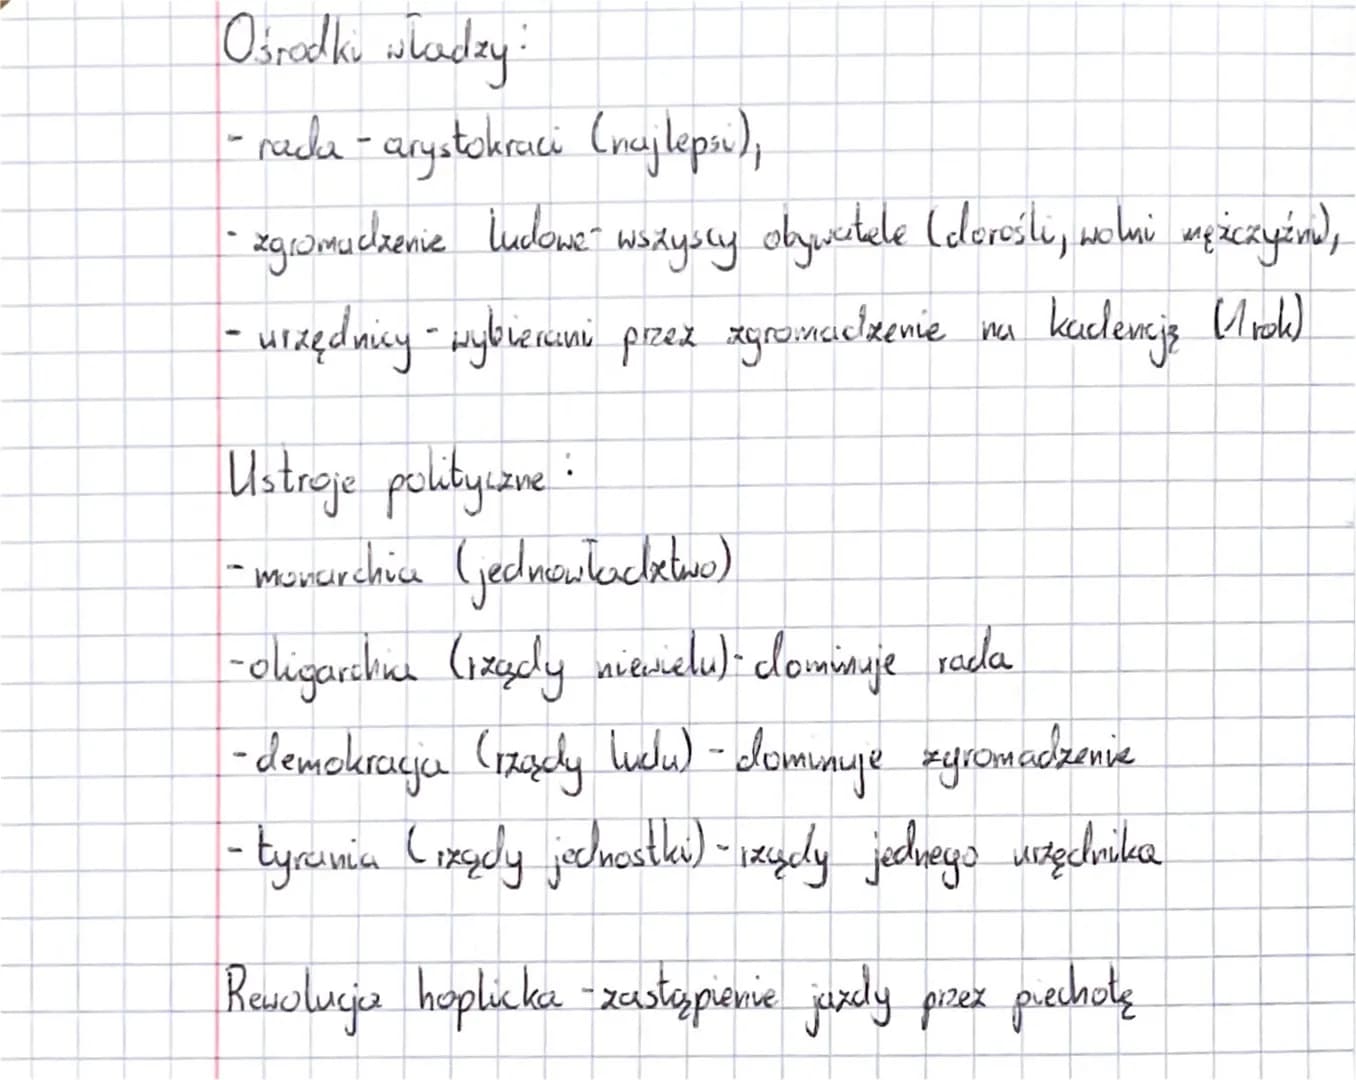 Ośrodki władzy:
- rada - arystokraci (najlepsi),
- zgromadzenie ludowe - wszyscy obywatele (dorośli, wolni mężczyźni),
- urzędnicy - wybierani przez zgromadzenie na kadencję (1 rok)
Ustroje polityczne:
- monarchia (jednowładztwo)
- oligarchia (rządy niewielu) - dominuje rada
- demokracja (rządy ludu) - dominuje zgromadzenie
- tyrania (rządy jednostki) - rządy jednego urzędnika
Rewolucja hoplicka - zastąpienie jazdy przez piechotę